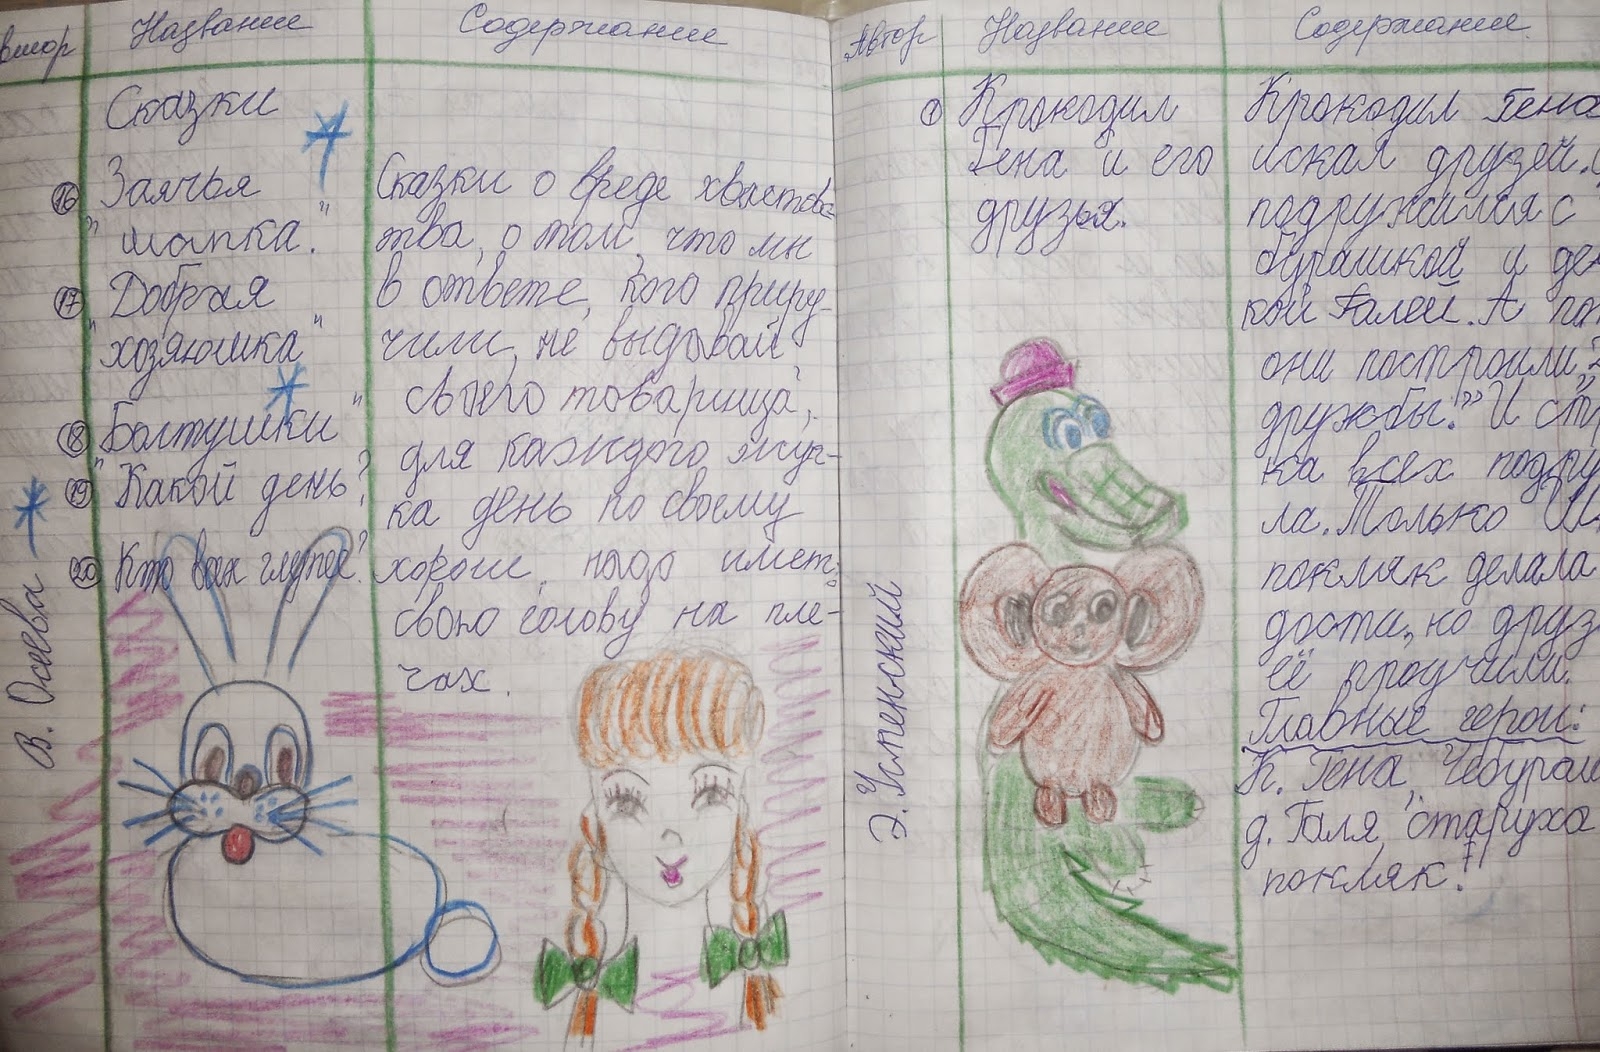 Автор
Название
Содержание
В. Осеева
Сказки
16 Заячья
"шапка."
17 Добрая
"хозяюшка"
18 Болтушки"
19 "Какой день?
20 Кто всех глупее?
Сказки о вреде хвастов-
тва, о том, что мы
в ответе, кого приру-
чили, не выдывай
своего товарища,
для каждого жуч-
ка день по своему
хорош, надо имет
свою голову на пле-
чах.
Автор
Название
Содержание
Э. Успенский
1 Крокодил
Гена и его
друзья.
Крокодил Гена
искал друзей.
подружился с
бурашкой и де
кой Галей. А по
они построили
дружбы!" И ст
ка всех подру
ла. Только Ш
покляк делала
дости, но друз
её проучили.
Главные герои:
К. Гена, Чебураш
д. Галя, "старуха
покляк!